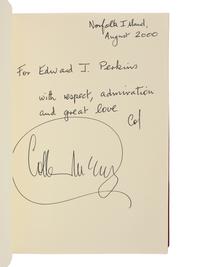 Norfolk Island,
August 2000
For Edward J. Perkins
with respect, admiration
and great love
Col